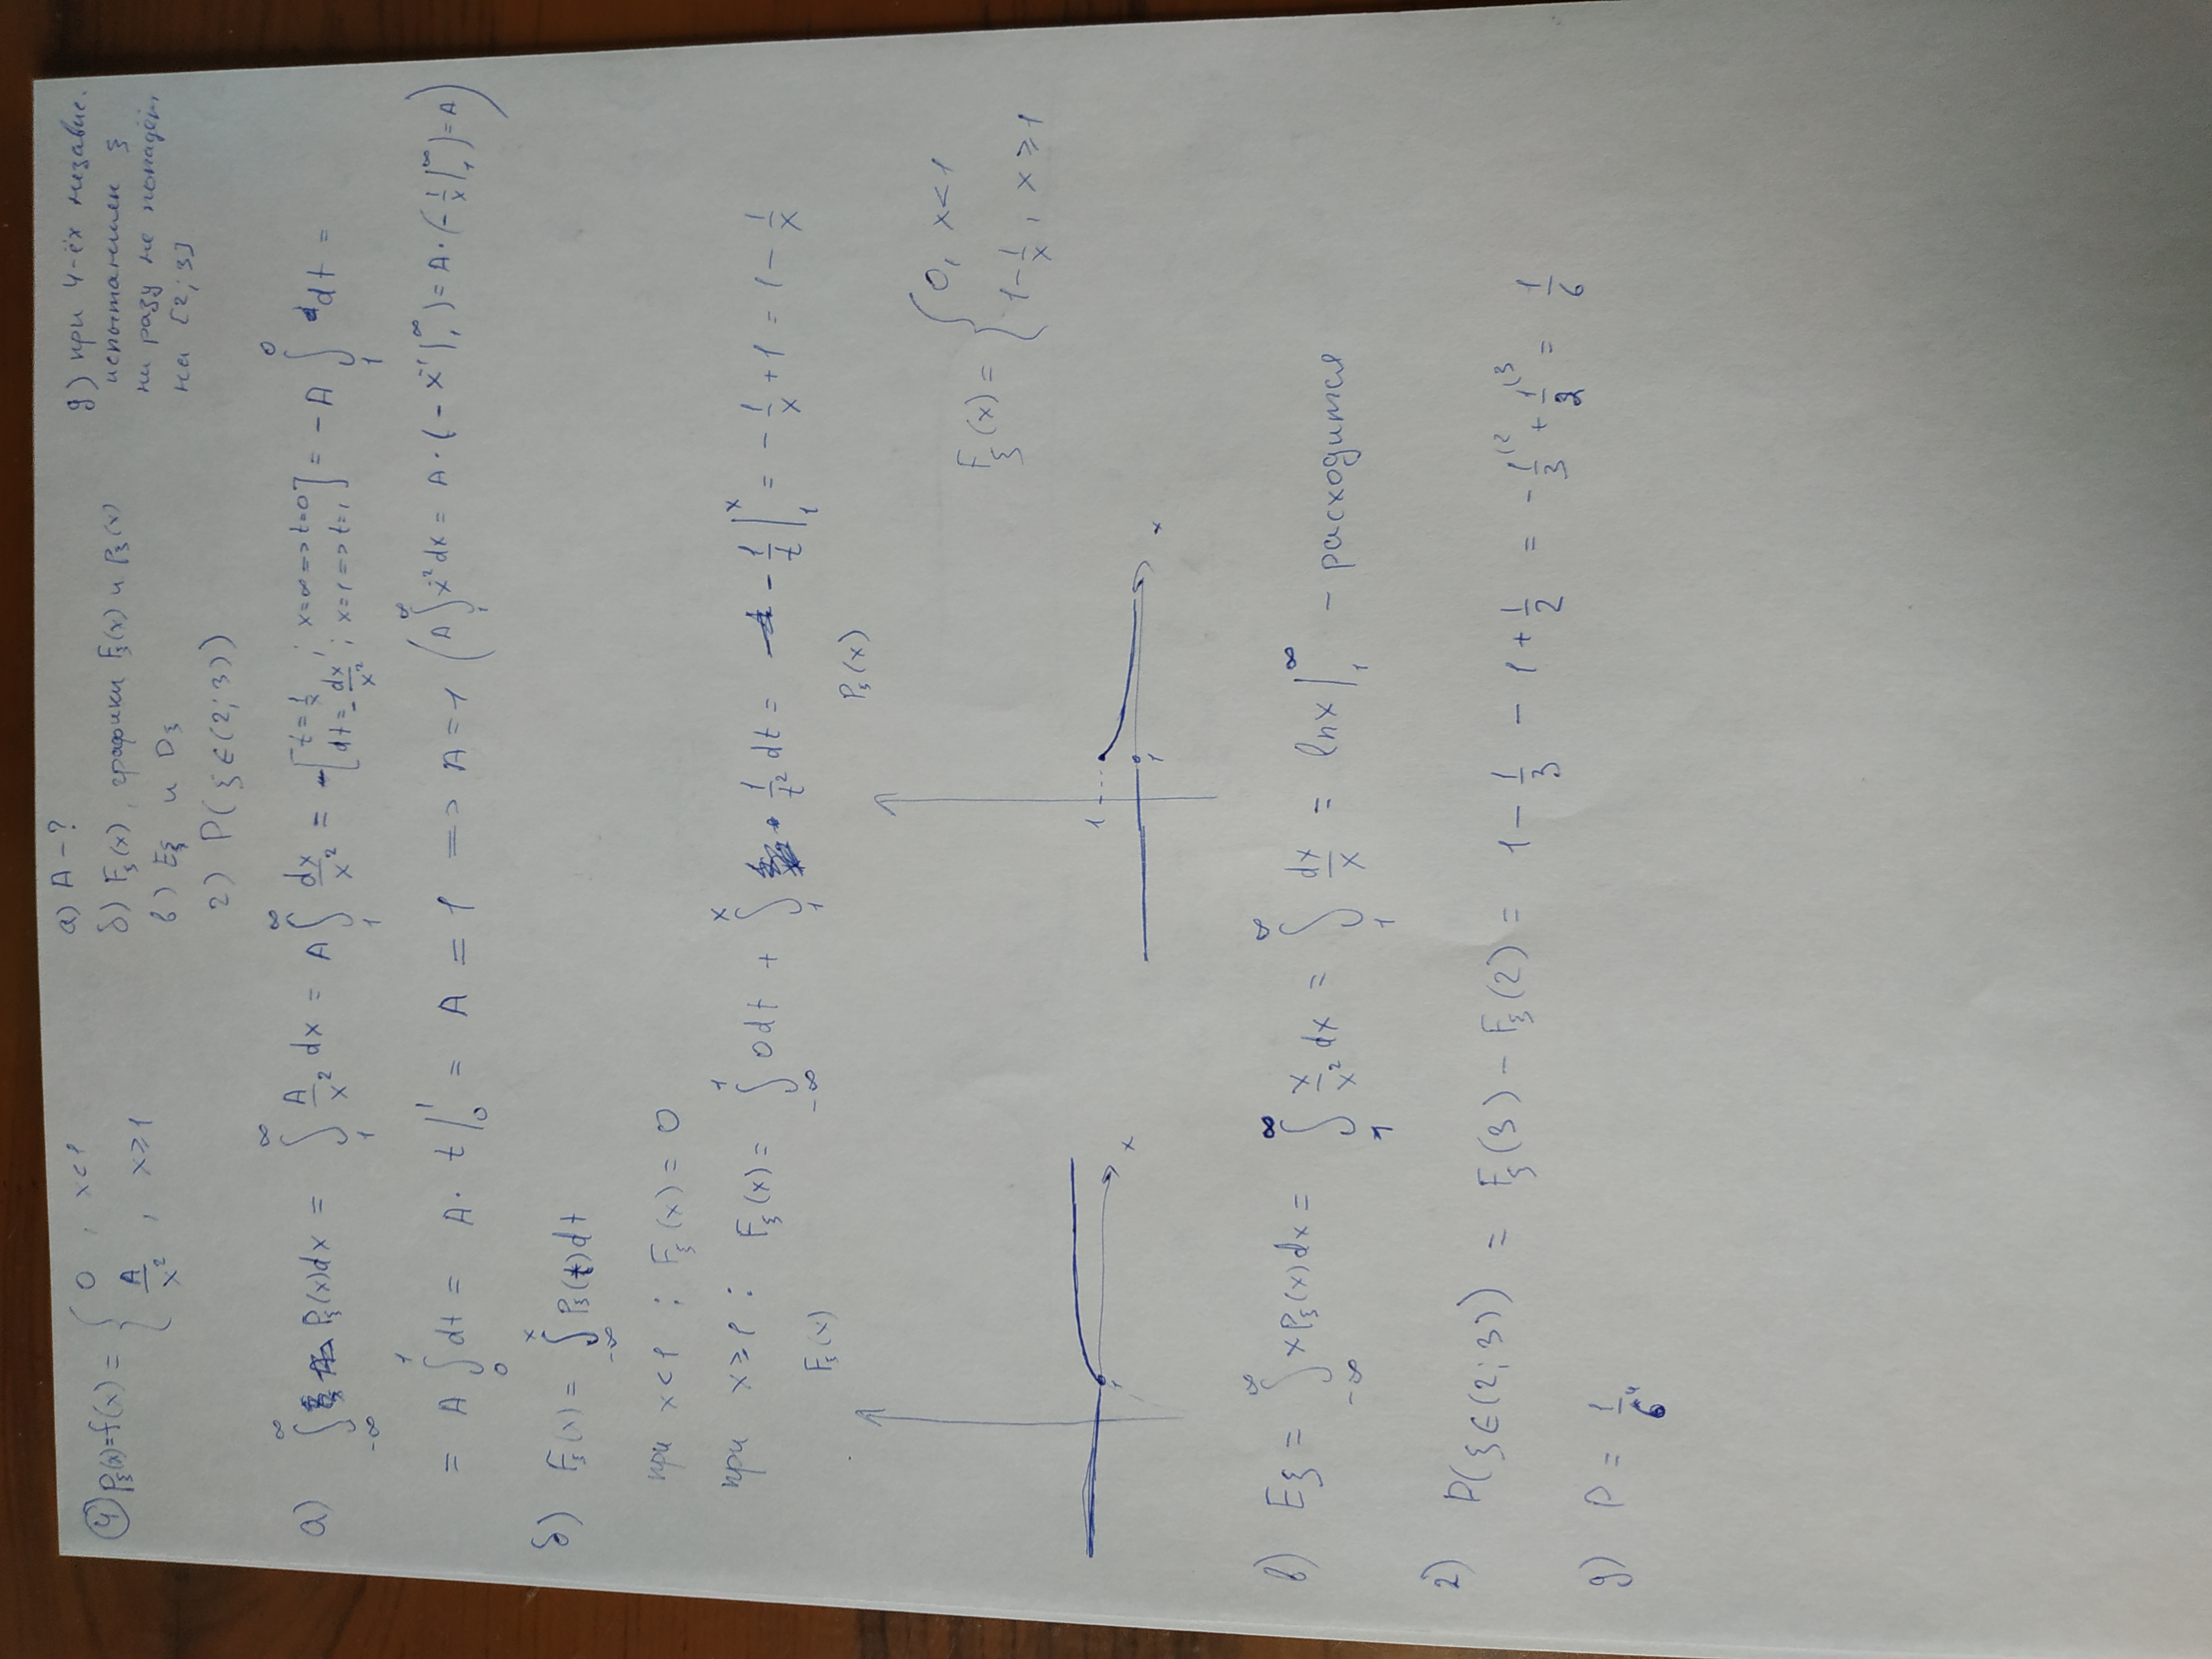 ④ P_ξ(x)=f(x) = { 0 , x<1
A/x² , x≥1
а) A – ?
б) F_ξ(x), графики F_ξ(x) и P_ξ(x)
в) Eξ и Dξ
г) P(ξ∈(2;3))
д) при 4-ёх независ.
испытаниях ξ
ни разу не попадёт
на [2;3]
а) ∫_{-∞}^{∞} P_ξ(x)dx = ∫_1^∞ A/x² dx = A ∫_1^∞ dx/x² = [t = 1/x ; x=∞ => t=0 dt = -dx/x² ; x=1 => t=1] = -A ∫_1^0 dt =
= A ∫_0^1 dt = A · t|_0^1 = A = 1 => A = 1 (A ∫_1^∞ x^{-2} dx = A · (- x^{-1}|_1^∞) = A · (- 1/x|_1^∞) = A)
б) F_ξ(x) = ∫_{-∞}^x P_ξ(t)dt
при x<1 : F_ξ(x) = 0
при x≥1 : F_ξ(x) = ∫_{-∞}^1 0dt + ∫_1^x · 1/t² dt = - 1/t|_1^x = - 1/x + 1 = 1 - 1/x
F_ξ(x)
1
x
P_ξ(x)
1
1
x
F_ξ(x) = { 0, x<1
1 - 1/x , x≥1
в) Eξ = ∫_{-∞}^∞ xP_ξ(x)dx = ∫_1^∞ x/x² dx = ∫_1^∞ dx/x = lnx|_1^∞ – расходится
г) P(ξ∈(2;3)) = F_ξ(3) - F_ξ(2) = 1 - 1/3 - 1 + 1/2 = - 1/3^{(2} + 1/2^{(3} = 1/6
д) P = 1/6⁴